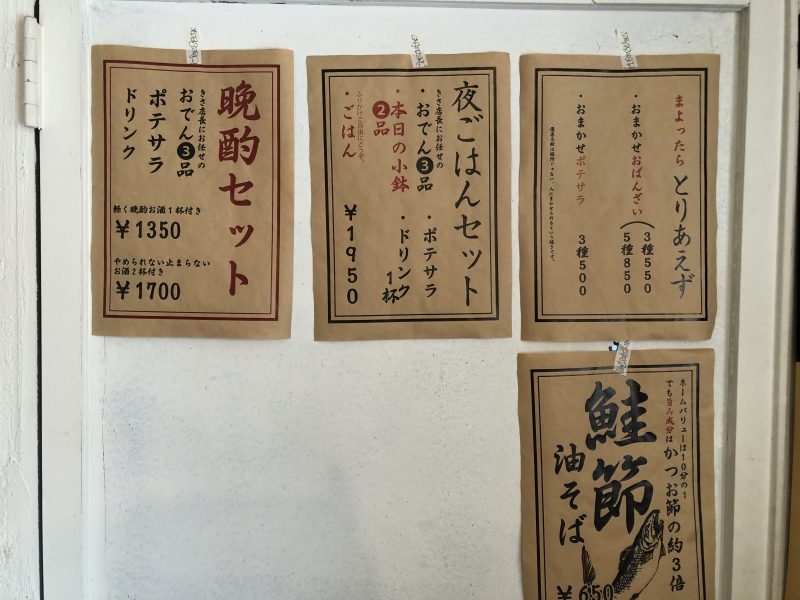 晩酌セット
きさ店長にお任せの
おでん❸品
ポテサラ
ドリンク
軽く晩酌お酒1杯付き
¥1350
やめられない止まらない
お酒2杯付き
¥1700
夜ごはんセット
きさ店長にお任せの
・おでん❸品
・ポテサラ
・本日の小鉢
❷品
・ドリンク
1杯
ふりかけご自由にどうぞ、
・ごはん
¥1950
まよったら とりあえず
・おまかせおばんざい
3種550
5種850
・おまかせポテサラ
3種500
ネームバリューは10分の1
でも旨み成分は
かつお節の約3倍
鮭節
油そば
¥650